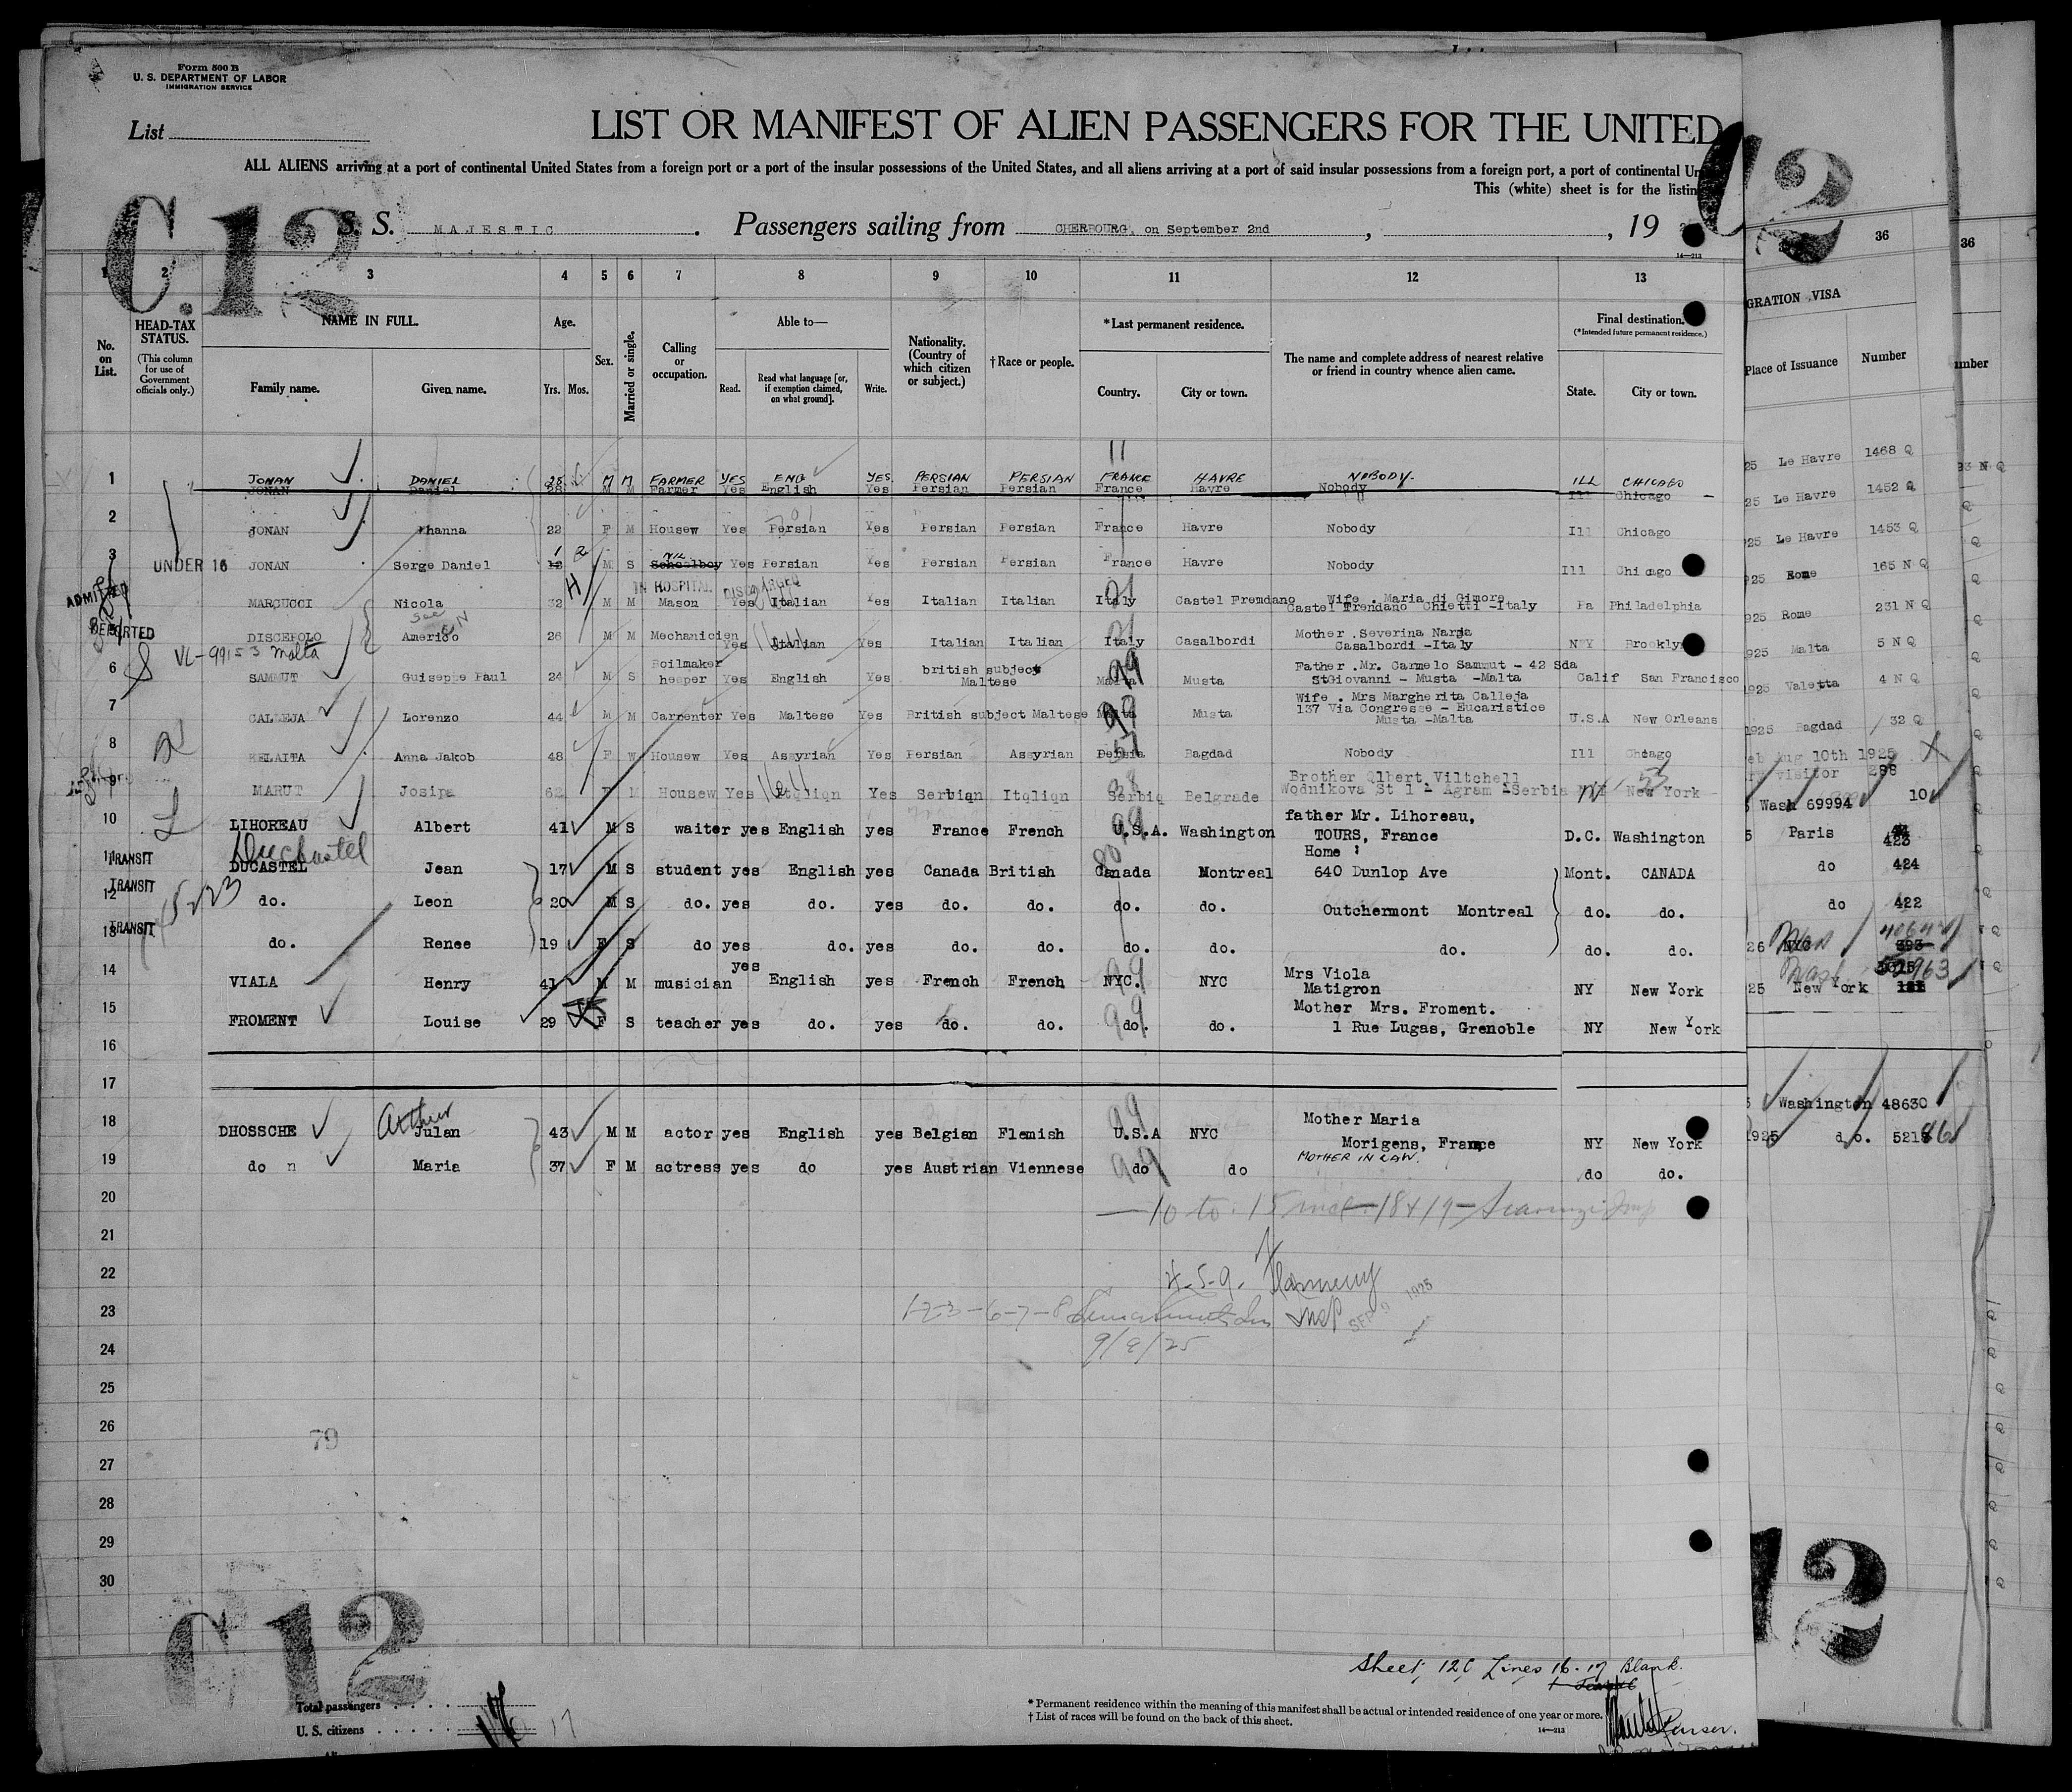 Form 500 B
U. S. DEPARTMENT OF LABOR
IMMIGRATION SERVICE
List
LIST OR MANIFEST OF ALIEN PASSENGERS FOR THE UNITED
ALL ALIENS arriving at a port of continental United States from a foreign port or a port of the insular possessions of the United States, and all aliens arriving at a port of said insular possessions from a foreign port, a port of continental Un
This (white) sheet is for the listin
C.12
12
S. S. MAJESTIC. Passengers sailing from CHERBOURG, on September 2nd, , 19
14—213
1 2 3 4 5 6 7 8 9 10 11 12 13 36 36
No. on List.
HEAD-TAX STATUS.
(This column for use of Government officials only.)
NAME IN FULL.
Family name. Given name.
Age.
Yrs. Mos.
Sex.
Married or single.
Calling or occupation.
Able to—
Read. Read what language [or, if exemption claimed, on what ground]. Write.
Nationality. (Country of which citizen or subject.)
† Race or people.
* Last permanent residence.
Country. City or town.
The name and complete address of nearest relative or friend in country whence alien came.
Final destination.
(*Intended future permanent residence.)
State. City or town.
GRATION VISA
Place of Issuance Number
mber
1 JONAN DANIEL 28 M M FARMER YES ENG YES PERSIAN PERSIAN FRANCE HAVRE NOBODY. ILL CHICAGO 25 Le Havre 1468 Q
JONAN Daniel 28 M M Farmer Yes English Yes Persian Persian France Havre Nobody Ill Chicago 25 Le Havre 1452 Q
2 JONAN 22 F M Housew Yes Persian Yes Persian Persian France Havre Nobody Ill Chicago 925 Le Havre 1453 Q
3 UNDER 16 JONAN Serge Daniel 1 2 M S NIL Schoolboy Yes Persian Yes Persian Persian France Havre Nobody Ill Chicago 925 Rome 165 N Q
IN HOSPITAL DISCHARGED
ADMITTED MARCUCCI Nicola 32 M M Mason Yes Italian Yes Italian Italian Italy Castel Fremdano Wife . Maria di Gimore Pa Philadelphia 925 Rome 231 N Q
Castel Frendano Chietti -Italy
DEPORTED DISCEPOLO Americo 26 M M Mechanicien Yes Italian Yes Italian Italian Italy Casalbordi Mother .Severina Narda NY Brooklyn 925 Malta 5 N Q
Casalbordi -Italy
VL-99153 Malta
6 SAMMUT Guiseppe Paul 24 M S Boilmaker heeper Yes English Yes british subject Maltese Malta Musta Father .Mr. Carmelo Sammut - 42 Sda Calif San Francisco 1925 Valetta 4 N Q
StGiovanni - Musta -Malta
7 CALLEJA Lorenzo 44 M M Carpenter Yes Maltese Yes British subject Maltese Malta Musta Wife . Mrs Margherita Calleja U.S.A New Orleans 1925 Bagdad 32 Q
137 Via Congresse - Eucaristice
Musta -Malta
8 KELAITA Anna Jakob 48 F W Housew Yes Assyrian Yes Persian Assyrian Persia Bagdad Nobody Ill Chcago Aug 10th 1925
visitor 298
9 MARUT Josipa 62 F M Housew Yes Italian Yes Serbian Italian Serbia Belgrade Brother Albert Viltchell NY New York
Wodnikova St 1 - Agram -Serbia
Wash 69994 10
10 LIHOREAU Albert 41 M S waiter yes English yes France French U.S.A. Washington father Mr. Lihoreau, D.C. Washington 5 Paris 423
TOURS, France
11 TRANSIT DUCASTEL Jean 17 M S student yes English yes Canada British Canada Montreal Home : Mont. CANADA do 424
640 Dunlop Ave
12 TRANSIT do. Leon 20 M S do. yes do. yes do. do. do. do. Outchermont Montreal do. do. do 422
13 TRANSIT do. Renee 19 F S do yes do. yes do. do. do. do. do. do. do. 26 NYC 393
14 VIALA Henry 41 M M musician yes English yes French French NYC. NYC Mrs Viola NY New York
Matigron
25 New York
15 FROMENT Louise 29 F S teacher yes do. yes do. do. do. do. Mother Mrs. Froment. NY New York
1 Rue Lugas, Grenoble
16
17
18 DHOSSCHE Arthur Julan 43 M M actor yes English yes Belgian Flemish U.S.A NYC Mother Maria NY New York Washington 48630
Morigens, France
19 do n Maria 37 F M actress yes do yes Austrian Viennese do do MOTHER IN LAW. do do. 1925 do. 52186
20
10 to 15 incl - 18 + 19 -
21
22
4-5-9. Insp SEP 9 1925
23
1-2-3-6-7-8
9/9/25
24
25
26
79
27
28
29
30
C 12
12
Sheet, 12C Lines 16-17 Blank.
Purser.
Total passengers 17
U. S. citizens
* Permanent residence within the meaning of this manifest shall be actual or intended residence of one year or more.
† List of races will be found on the back of this sheet.
14—213